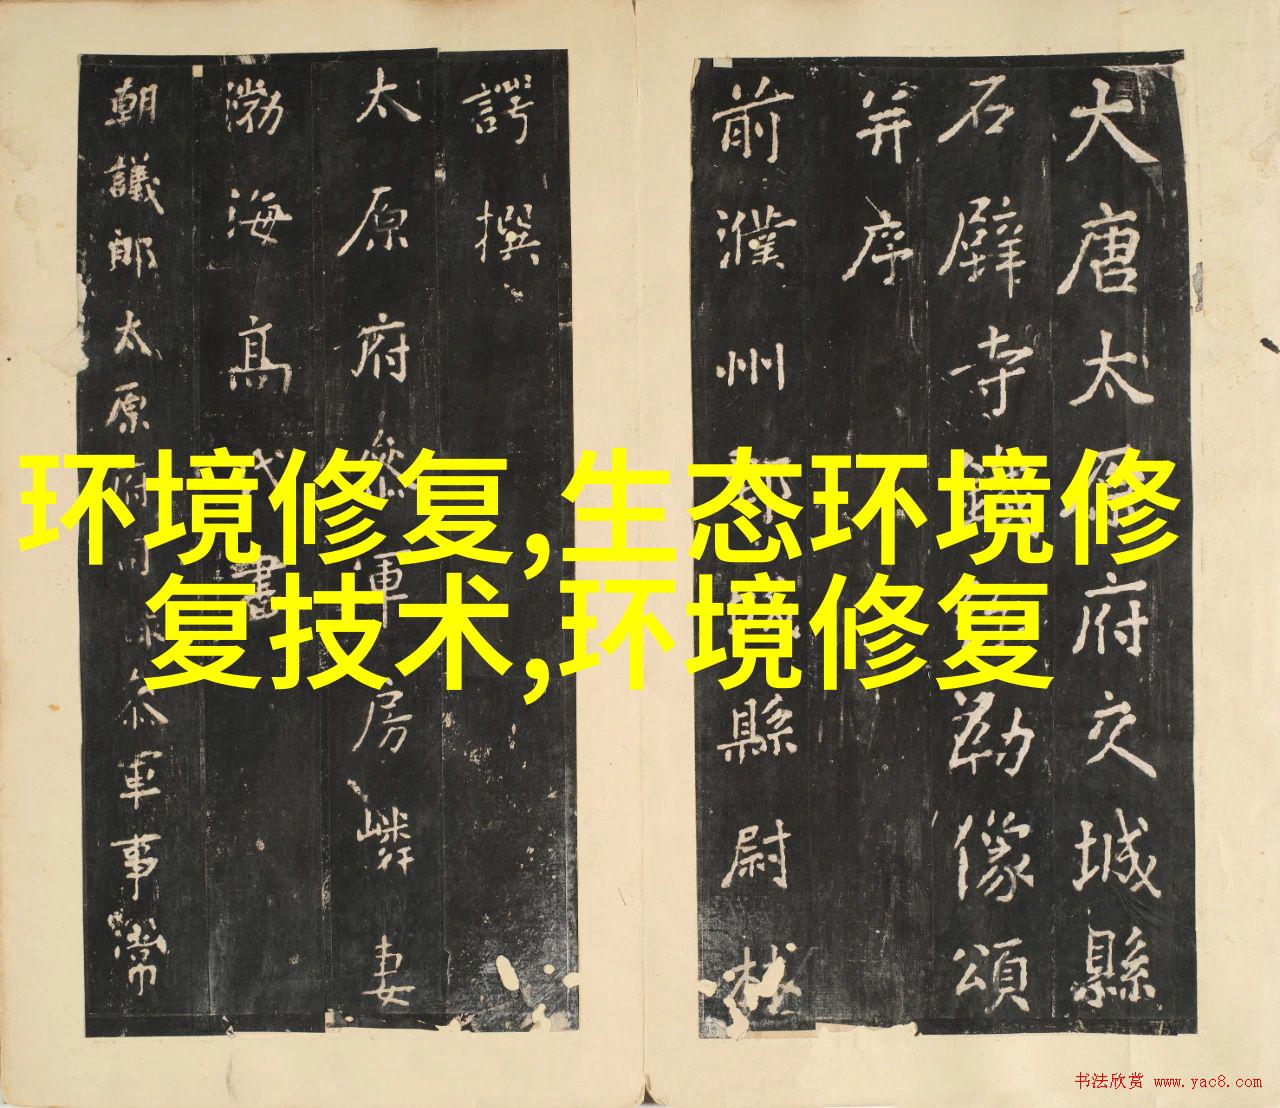 环境修复,生态环境修
复技术,环境修复
大唐太原府交城縣
石壁寺勒像頌
并序
前濮州縣尉林
諤撰
太原府參軍房嶙妻
渤海高氏書
朝議郎太原府司參軍事常
书法欣赏 www.yac8.com